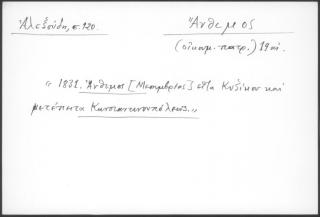 Ἀλεξούδη, σ. 120.
Ἄνθιμος
(οἰκουμ. πατρ.) 19 αἰ.
"1831. Ἄνθιμος [Μεσημβρίας] εἶτα Κυζίκου καὶ
μετέπειτα Κωνσταντινουπόλεως."